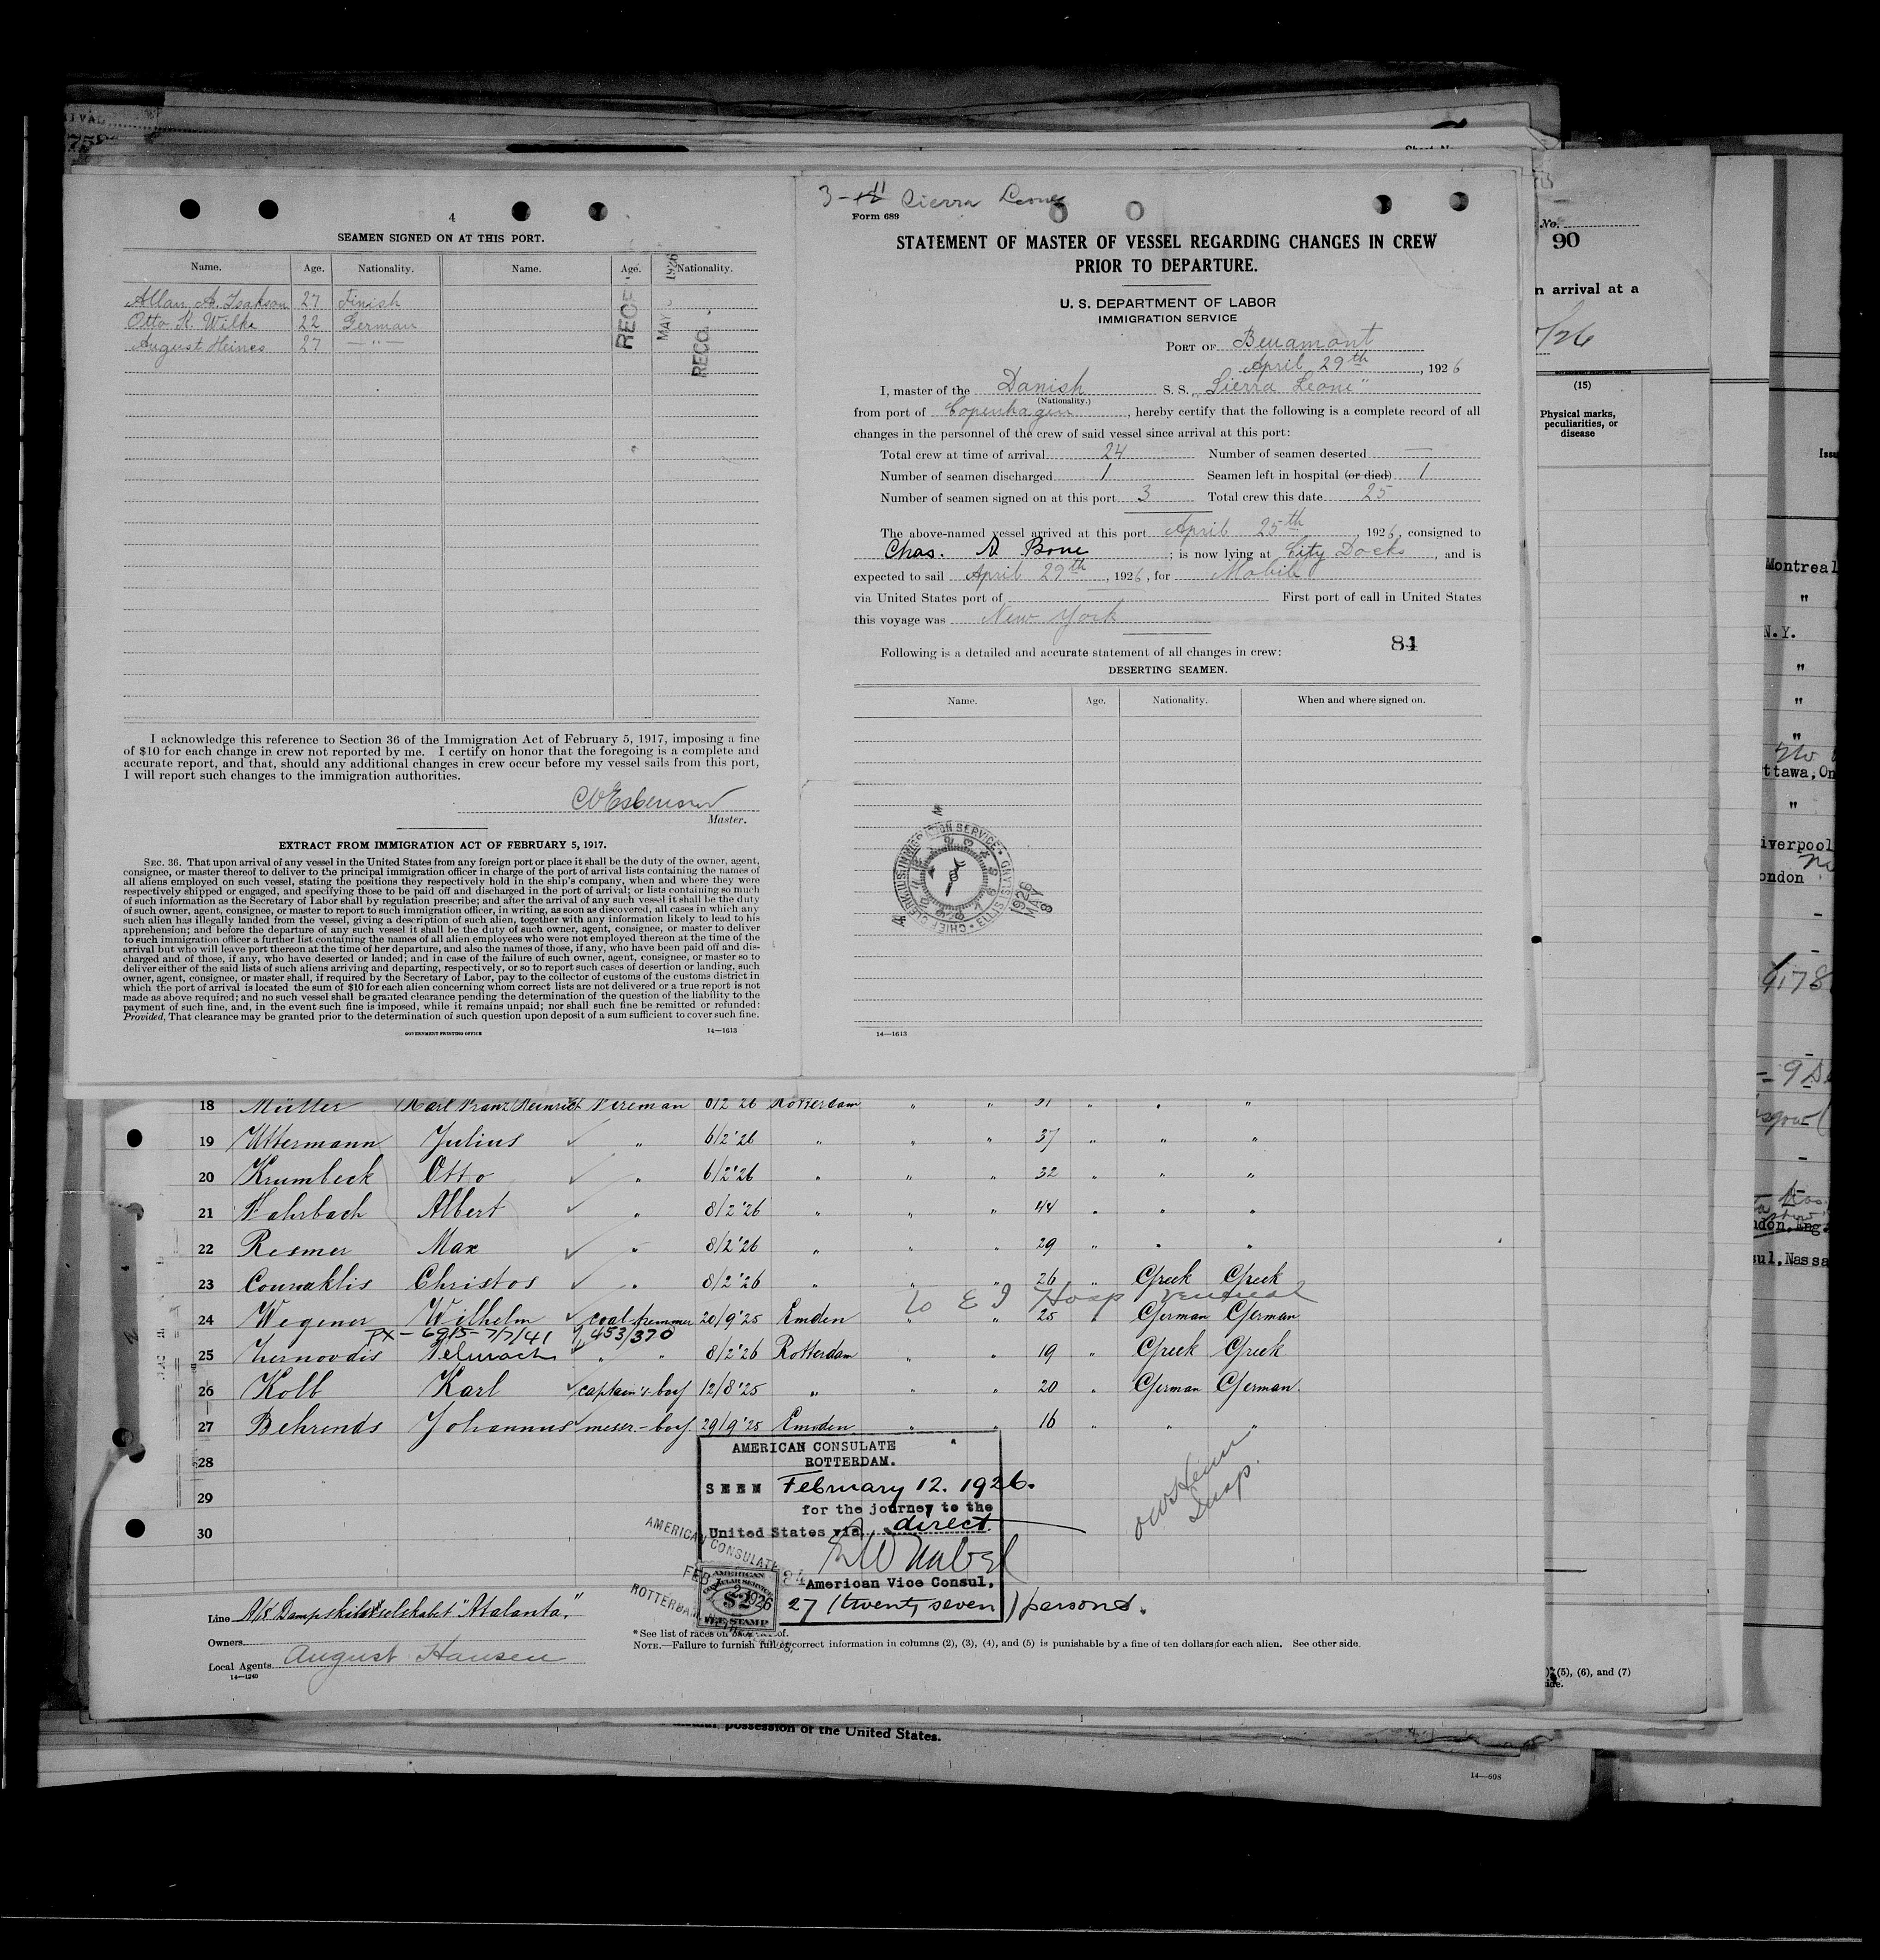 4
SEAMEN SIGNED ON AT THIS PORT.
Name. Age. Nationality. Name. Age. Nationality.
Allan A. Isakson 27 Finish
Otto K. Wilke 22 German
August Heines 27 — " —
MAY 1926
RECD.
I acknowledge this reference to Section 36 of the Immigration Act of February 5, 1917, imposing a fine
of $10 for each change in crew not reported by me. I certify on honor that the foregoing is a complete and
accurate report, and that, should any additional changes in crew occur before my vessel sails from this port,
I will report such changes to the immigration authorities.
Master.
EXTRACT FROM IMMIGRATION ACT OF FEBRUARY 5, 1917.
SEC. 36. That upon arrival of any vessel in the United States from any foreign port or place it shall be the duty of the owner, agent,
consignee, or master thereof to deliver to the principal immigration officer in charge of the port of arrival lists containing the names of
all aliens employed on such vessel, stating the positions they respectively hold in the ship's company, when and where they were
respectively shipped or engaged, and specifying those to be paid off and discharged in the port of arrival; or lists containing so much
of such information as the Secretary of Labor shall by regulation prescribe; and after the arrival of any such vessel it shall be the duty
of such owner, agent, consignee, or master to report to such immigration officer, in writing, as soon as discovered, all cases in which any
such alien has illegally landed from the vessel, giving a description of such alien, together with any information likely to lead to his
apprehension; and before the departure of any such vessel it shall be the duty of such owner, agent, consignee, or master to deliver
to such immigration officer a further list containing the names of all alien employees who were not employed thereon at the time of the
arrival but who will leave port thereon at the time of her departure, and also the names of those, if any, who have been paid off and dis-
charged and of those, if any, who have deserted or landed; and in case of the failure of such owner, agent, consignee, or master so to
deliver either of the said lists of such aliens arriving and departing, respectively, or so to report such cases of desertion or landing, such
owner, agent, consignee, or master shall, if required by the Secretary of Labor, pay to the collector of customs of the customs district in
which the port of arrival is located the sum of $10 for each alien concerning whom correct lists are not delivered or a true report is not
made as above required; and no such vessel shall be granted clearance pending the determination of the question of the liability to the
payment of such fine, and, in the event such fine is imposed, while it remains unpaid; nor shall such fine be remitted or refunded:
Provided, That clearance may be granted prior to the determination of such question upon deposit of a sum sufficient to cover such fine.
GOVERNMENT PRINTING OFFICE 14—1613
3- 11 Sierra Leone
Form 689
STATEMENT OF MASTER OF VESSEL REGARDING CHANGES IN CREW
PRIOR TO DEPARTURE.
U. S. DEPARTMENT OF LABOR
IMMIGRATION SERVICE
PORT OF Beuamont
April 29th, 1926
I, master of the Danish S. S. "Sierra Leone"
(Nationality.)
from port of Copenhagen, hereby certify that the following is a complete record of all
changes in the personnel of the crew of said vessel since arrival at this port:
Total crew at time of arrival 24 Number of seamen deserted —
Number of seamen discharged 1 Seamen left in hospital (or died) 1
Number of seamen signed on at this port 3 Total crew this date 25
The above-named vessel arrived at this port April 25th, 1926, consigned to
Chas. A Bone; is now lying at City Docks, and is
expected to sail April 29th, 1926, for Mobile
via United States port of First port of call in United States
this voyage was New York
84
Following is a detailed and accurate statement of all changes in crew:
DESERTING SEAMEN.
Name. Age. Nationality. When and where signed on.
CHIEF CLERK U.S. IMMIGRATION SERVICE ELLIS ISLAND
1926 MAY 8
14—1613
18 Müller Karl Franz Heinrich Fireman 6/2 26 Rotterdam " " 31 " " "
19 Uttermann Julius ✓ " 6/2'26 " " " 37 " " "
20 Krumbeck Otto ✓ " 6/2'26 " " " 32 " " "
21 Fahrbach Albert ✓ " 8/2'26 " " " 44 " " "
22 Resmer Max ✓ " 8/2'26 " " " 29 " " "
23 Counaklis Christos ✓ " 8/2'26 " " " 26 " Greek Greek
to E I Hosp venereal
24 Wegener Wilhelm ✓ coal-tremmer 20/9'25 Emden " " 25 " German German
TX-6915-7/7/41 453/370
25 Zernovdis Telmach " " 8/2'26 Rotterdam " " 19 " Greek Greek
26 Kolb Karl ✓ captain's-boy 12/8'25 " " " 20 " German German.
27 Behrends Johannus ✓ messr.-boy. 29/9'25 Emden " " 16 " " "
28
29
30
AMERICAN CONSULATE
ROTTERDAM.
SEEN February 12. 1926.
for the journey to the
United States via direct.
American Vice Consul,
27 (twenty seven) persons.
AMERICAN CONSULATE
FEB 12 1926
ROTTERDAM
AMERICAN
CONSULAR SERVICE
$2
FEE STAMP
Line A/S Dampskibsselskabet "Atalanta."
Owners
Local Agents August Hansen
14—1240
*See list of races on back hereof.
NOTE.—Failure to furnish full or correct information in columns (2), (3), (4), and (5) is punishable by a fine of ten dollars for each alien. See other side.
possession of the United States.
14—698
No.
90
n arrival at a
/26
(15)
Physical marks,
peculiarities, or
disease
(5), (6), and (7)
ide.
Issu
Montreal
"
N.Y.
"
"
"
ttawa, On
"
iverpool
ondon
ndon, Eng.
sul, Nassa